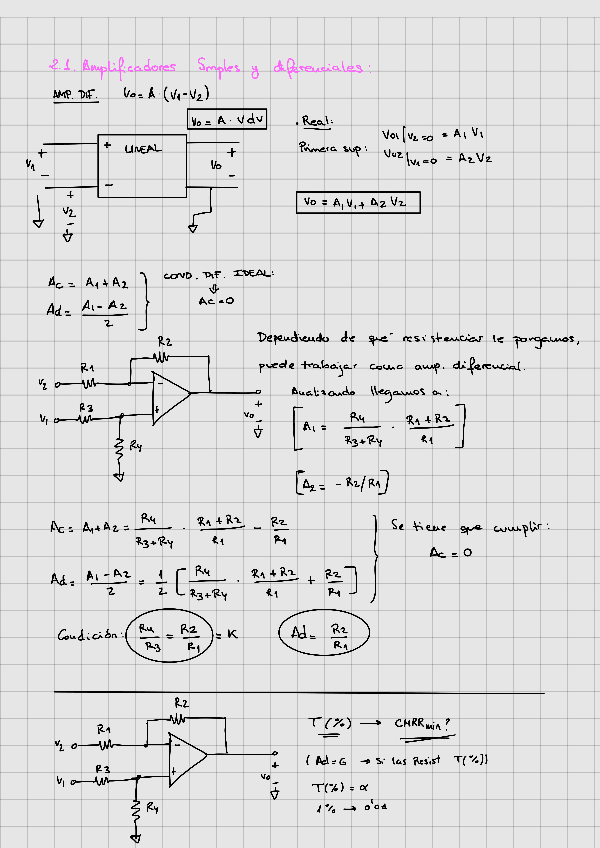 2.1. Amplificadores Smples y diferenciales:
AMP. DIF. Vo = A · (V1 - V2)
Vo = A · Vdv
· Real:
Primera sup: Vo1/V2=0 = A1 V1
Vo2/V1=0 = A2 V2
Vo = A1V1 + A2 V2
V1 + - + - LINEAL + - Vo
+ V2 -
Ac = A1 + A2
Ad = A1 - A2 / 2
COND. DIF. IDEAL:
⇓
Ac = 0
R2
R1
V2
R3
V1
R4
- +
+ Vo -
Dependiendo de qué resistencias le pongamos,
puede trabajar como amp. diferencial.
Analizando llegamos a:
[A1 = R4 / R3+R4 · R1+R2 / R1]
[A2 = - R2/R1]
Ac = A1+A2 = R4 / R3+R4 · R1+R2 / R1 - R2 / R1
Ad = A1-A2 / 2 = 1 / 2 [R4 / R3+R4 · R1+R2 / R1 + R2 / R1]
Se tiene que cumplir:
Ac = 0
Condición: R4 / R3 = R2 / R1 = K
Ad = R2 / R1
R2
R1
V2
R3
V1
R4
- +
+ Vo -
T(%) → CMRRmin?
(Ad=G → si las Resist T(%))
T(%) = α
1% → 0'01